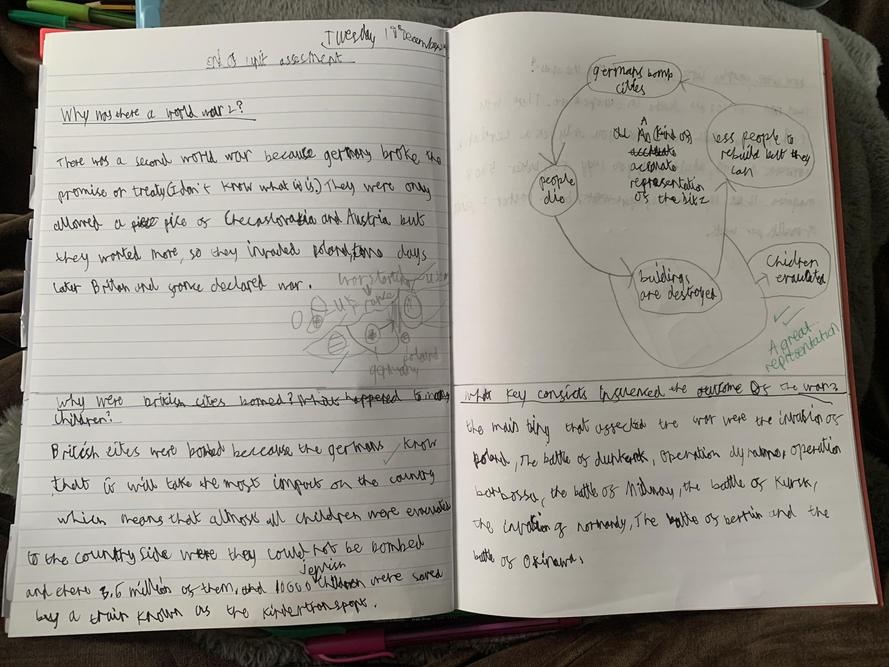 Tuesday
END of unit assesment
Why was there a world war 2?
There was a second world war because germany broke the
promise or treaty (I don't know what it is.) They were only
allowed a pice of and Austria but
they wanted more, so they invaded poland, days
later Britan and declared war.
war starting
UK
poland
germany
Why were british cities bomed? What happened to many
children?
British cites were because the germans know
that it will take the most impact on the country
which means that almost all children were evacuated
to the country side were they could not be bombed
and there 3.6 million of them. and 10000 jewish children were saved
buy a train known as the kindertransport.
germans bomb
cities
people
die
buildings
are destroyed
Children
evacuated
less people to
rebuild but they
can
A (kind of)
accurate
representation
of the blitz
A great
representation
what key influenced the outcome of the war?
the main that the war were the invasion of
poland, The battle of dunkerk, operation dynamo, operation
barbossa, the battle of Midway, the battle of Kursk,
the of normandy, The battle of berlin and the
battle of Okinawa.